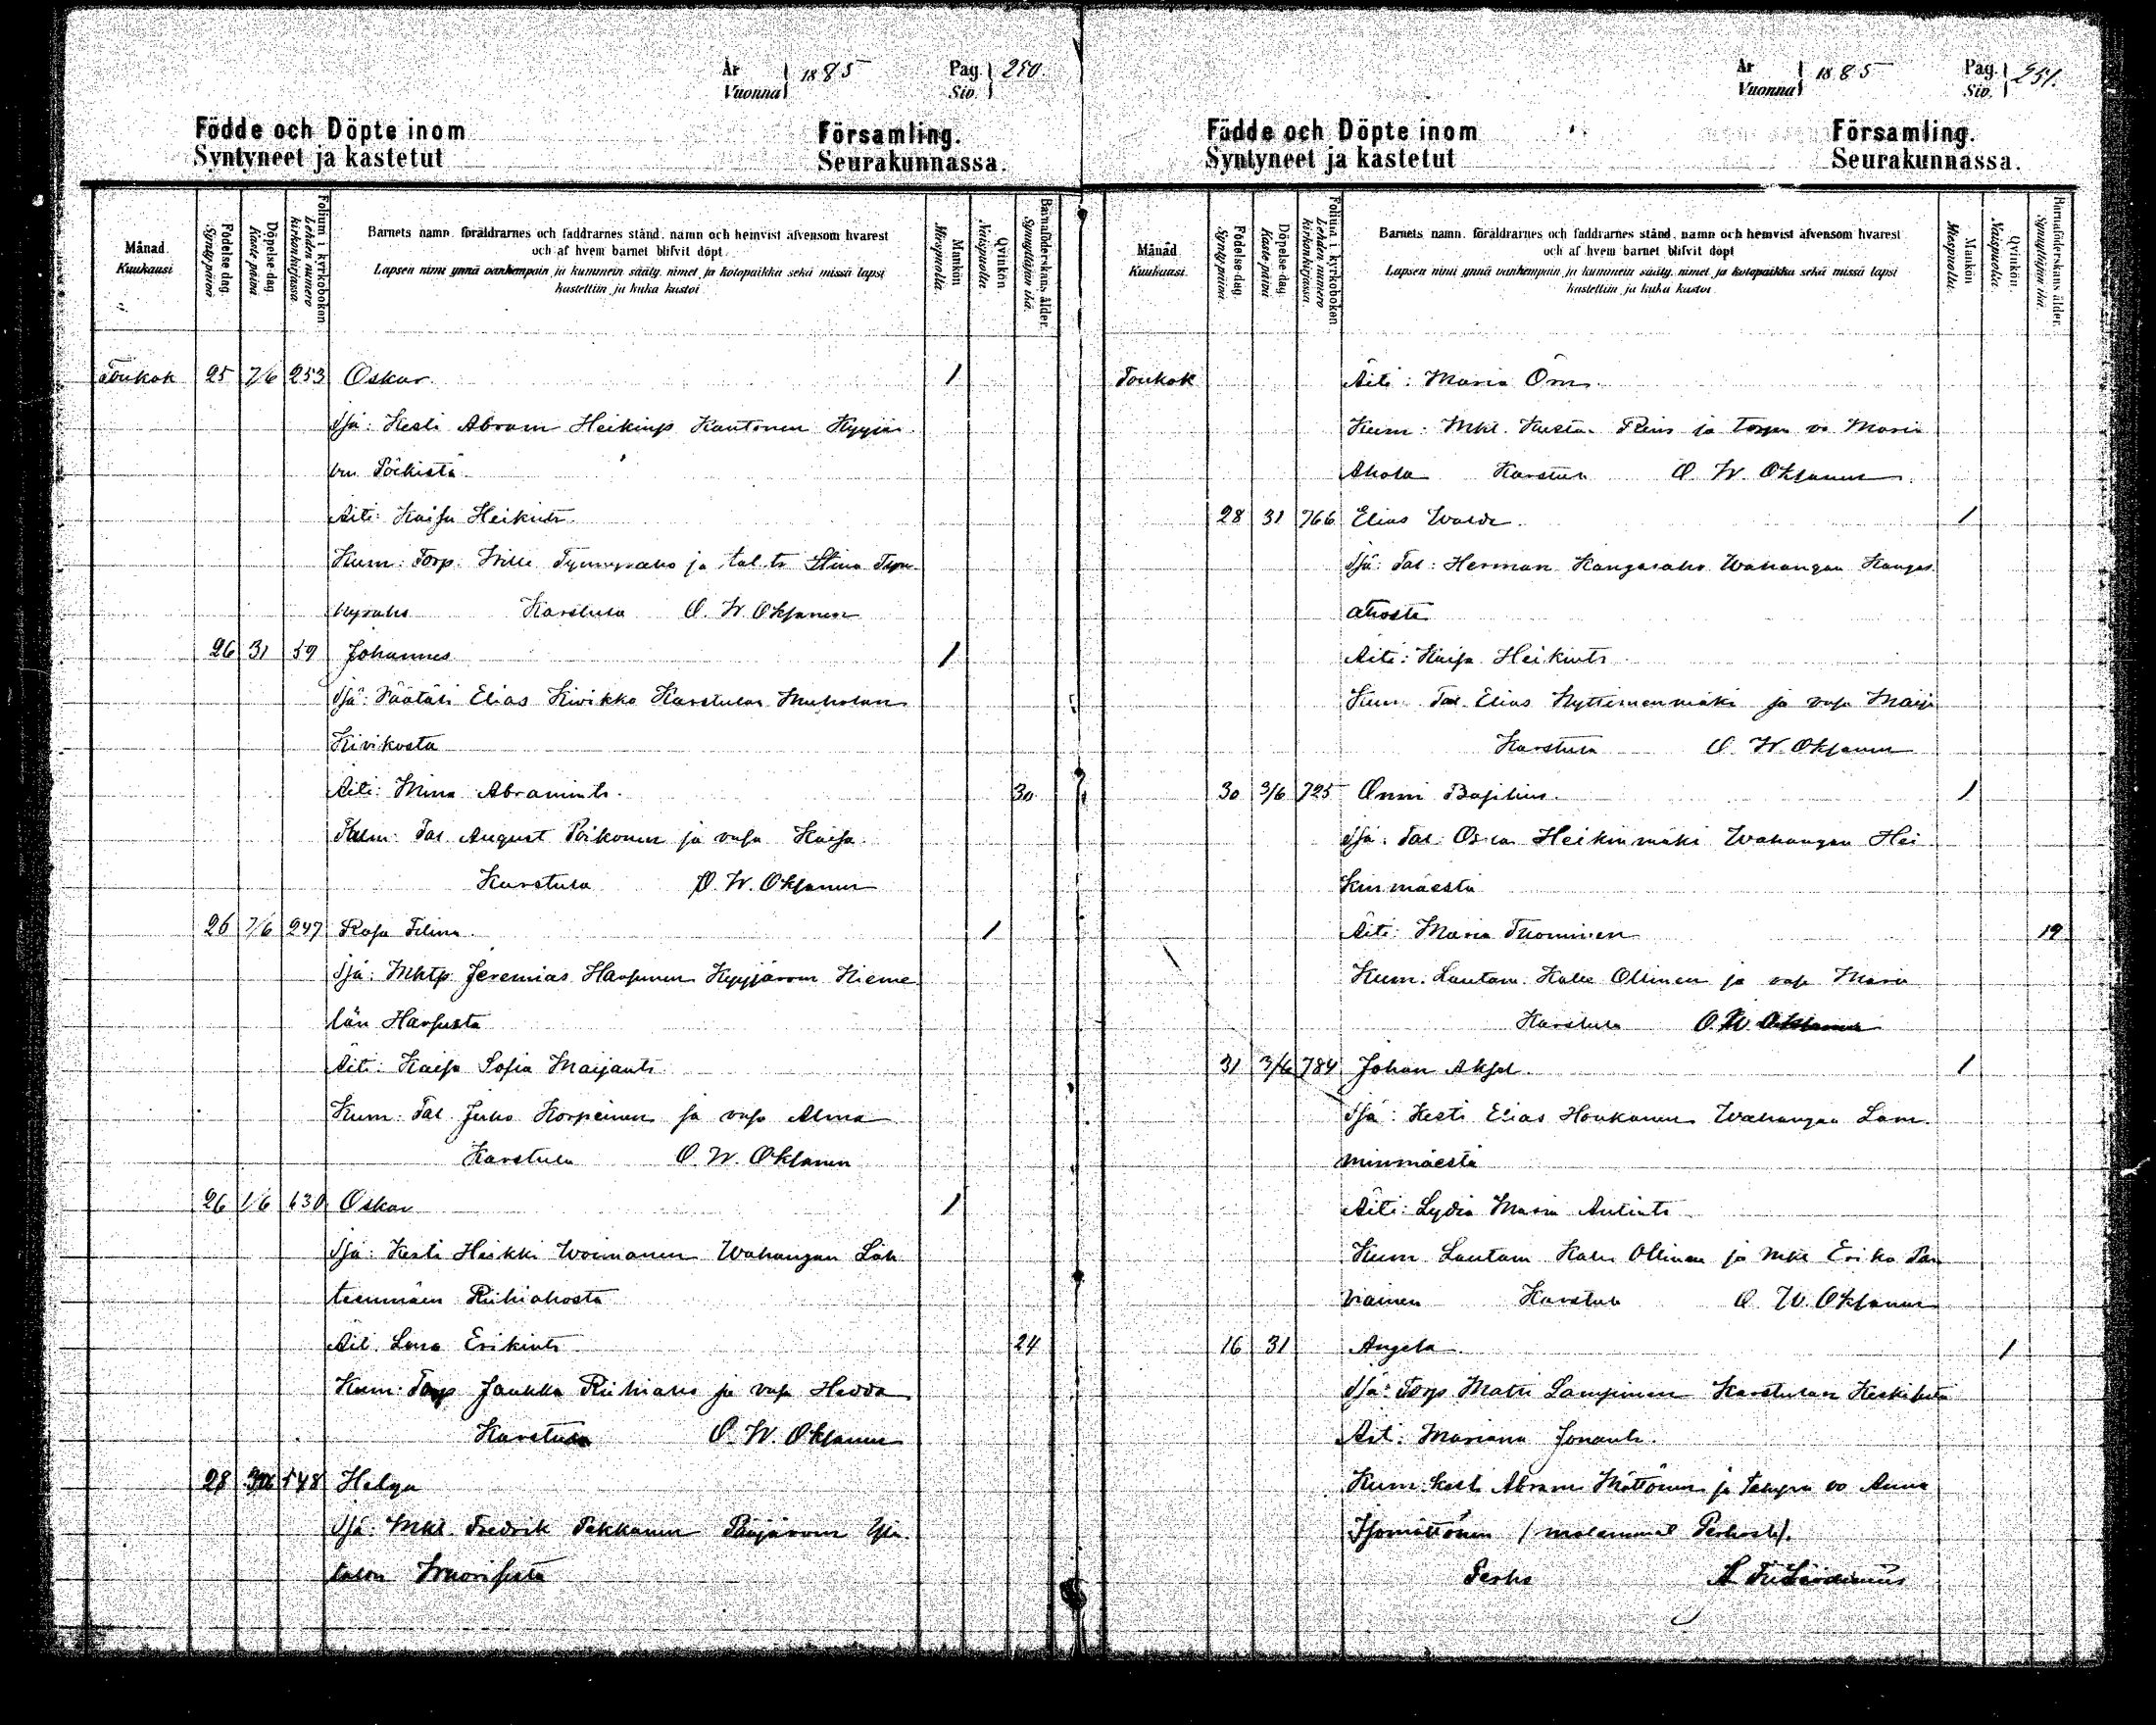 År 1885 Pag. 250.
Vuonna Siv.
Födde och Döpte inom Församling.
Syntyneet ja kastetut Seurakunnassa.
Månad Kuukausi
Födelse dag. Synty päivä
Döpelse dag Kaste päivä
Folium i kyrkoboken Lehden numero kirkonkirjassa.
Barnets namn, föräldrarnes och faddrarnes stånd, namn och hemvist äfvensom hvarest
och af hvem barnet blifvit döpt.
Lapsen nimi ynnä vanhempain ja kummein sääty, nimet ja kotopaikka sekä missä lapsi
kastettiin ja kuka kastoi
Mankön Miespuolia
Qvinkön Naispuolia
Barnaföderskans ålder. Synnyttäjän ikä.
Toukok 25 7/6 253 Oskar. 1
Isä: Kesti Abram Heikinp Kautonen Kyyjär
ven Pölkistä
Äiti: Kaisa Heikints
Kum: Torp. Wille Tynnyraho ja tal. tr Stina Tyn
nyraho Karstula O. W. Oksanen
26 31 59 Johannes 1
Isä: Räätäli Elias Kivikko Karstulan Muholan
Kivikosta
Äiti: Mina Abramints. 30
Kum: Tal. August Poikonen ja vaſa Kaisa
Karstula O. W. Oksanen
26 7/6 247 Rosa Selina 1
Isä: Mktp Jeremias Harjunen Kyyjärven Nieme
län Harjusta
Äiti: Kaisa Sofia Maijants
Kum: Tal. Juho Korpeinen ja vaſo Alma
Karstula O. W. Oksanen
26 1/6 630 Oskar 1
Isä: Kesti Heikki Woimanen Wahangan Läh
teenmäen Riihiahosta
Äit. Lena Erikints 24
Kum: Torp Jaakko Riihiaho ja vaſo Hedda
Karstula O. W. Oksanen
28 548 Helga
Isä: Mkl. Fredrik Pekkanen Pääjärven Yli
talon Wuorisesta
År 1885 Pag. 251.
Vuonna Siv.
Födde och Döpte inom Församling.
Syntyneet ja kastetut Seurakunnassa.
Månad Kuukausi.
Födelse dag. Synty päivä
Döpelse dag. Kaste päivä
Folium i kyrkoboken Lehden numero kirkonkirjassa.
Barnets namn, föräldrarnes och faddrarnes stånd, namn och hemvist äfvensom hvarest
och af hvem barnet blifvit döpt
Lapsen nimi ynnä vanhempain ja kummein sääty, nimet ja kotopaikka sekä missä lapsi
kastettiin ja kuka kastoi
Mankön Miespuolia.
Qvinkön. Naispuolia.
Barnaföderskans ålder. Synnyttäjän ikä.
Toukok Äiti: Maria Öm
Kum: Mkl. Kusta ja torpan vo Maria
Ahola Karstula O. W. Oksanen
28 31 766 Elias Walde. 1
Isä: Tal: Herman Kangasaho Wahangan Kangas
ahosta
Äiti: Kaisa Heikints
Kum Tal. Elias Kyttemenmäki ja vaſo Maija
Karstula O. W. Oksanen
30 3/6 725 Onni Basilius. 1
Isä: Tal: Oscar Heikinmäki Wahangan Hei
kinmäestä
Äiti: Maria Tuominen 19
Kum. Lautam. Kalle Ollinen ja vaſo Maria
Karstula O. W. Oksanen
31 3/6 784 Johan Aksel. 1
Isä: Kesti Elias Honkanen Wahangan Lam
minmäestä
Äiti: Lydia Maria Antints
Kum Lautam Kalle Ollinen ja mkl Erikka Par
viainen Karstula O. W. Oksanen
16 31 Angela 1
Isä: Torp. Matti Lampinen Karstulan
Äit: Mariana Jonants.
Kum: kesti Abram Möttönen ja vo Anna
Isomöttönen (molemmat Perhosta).
Perho